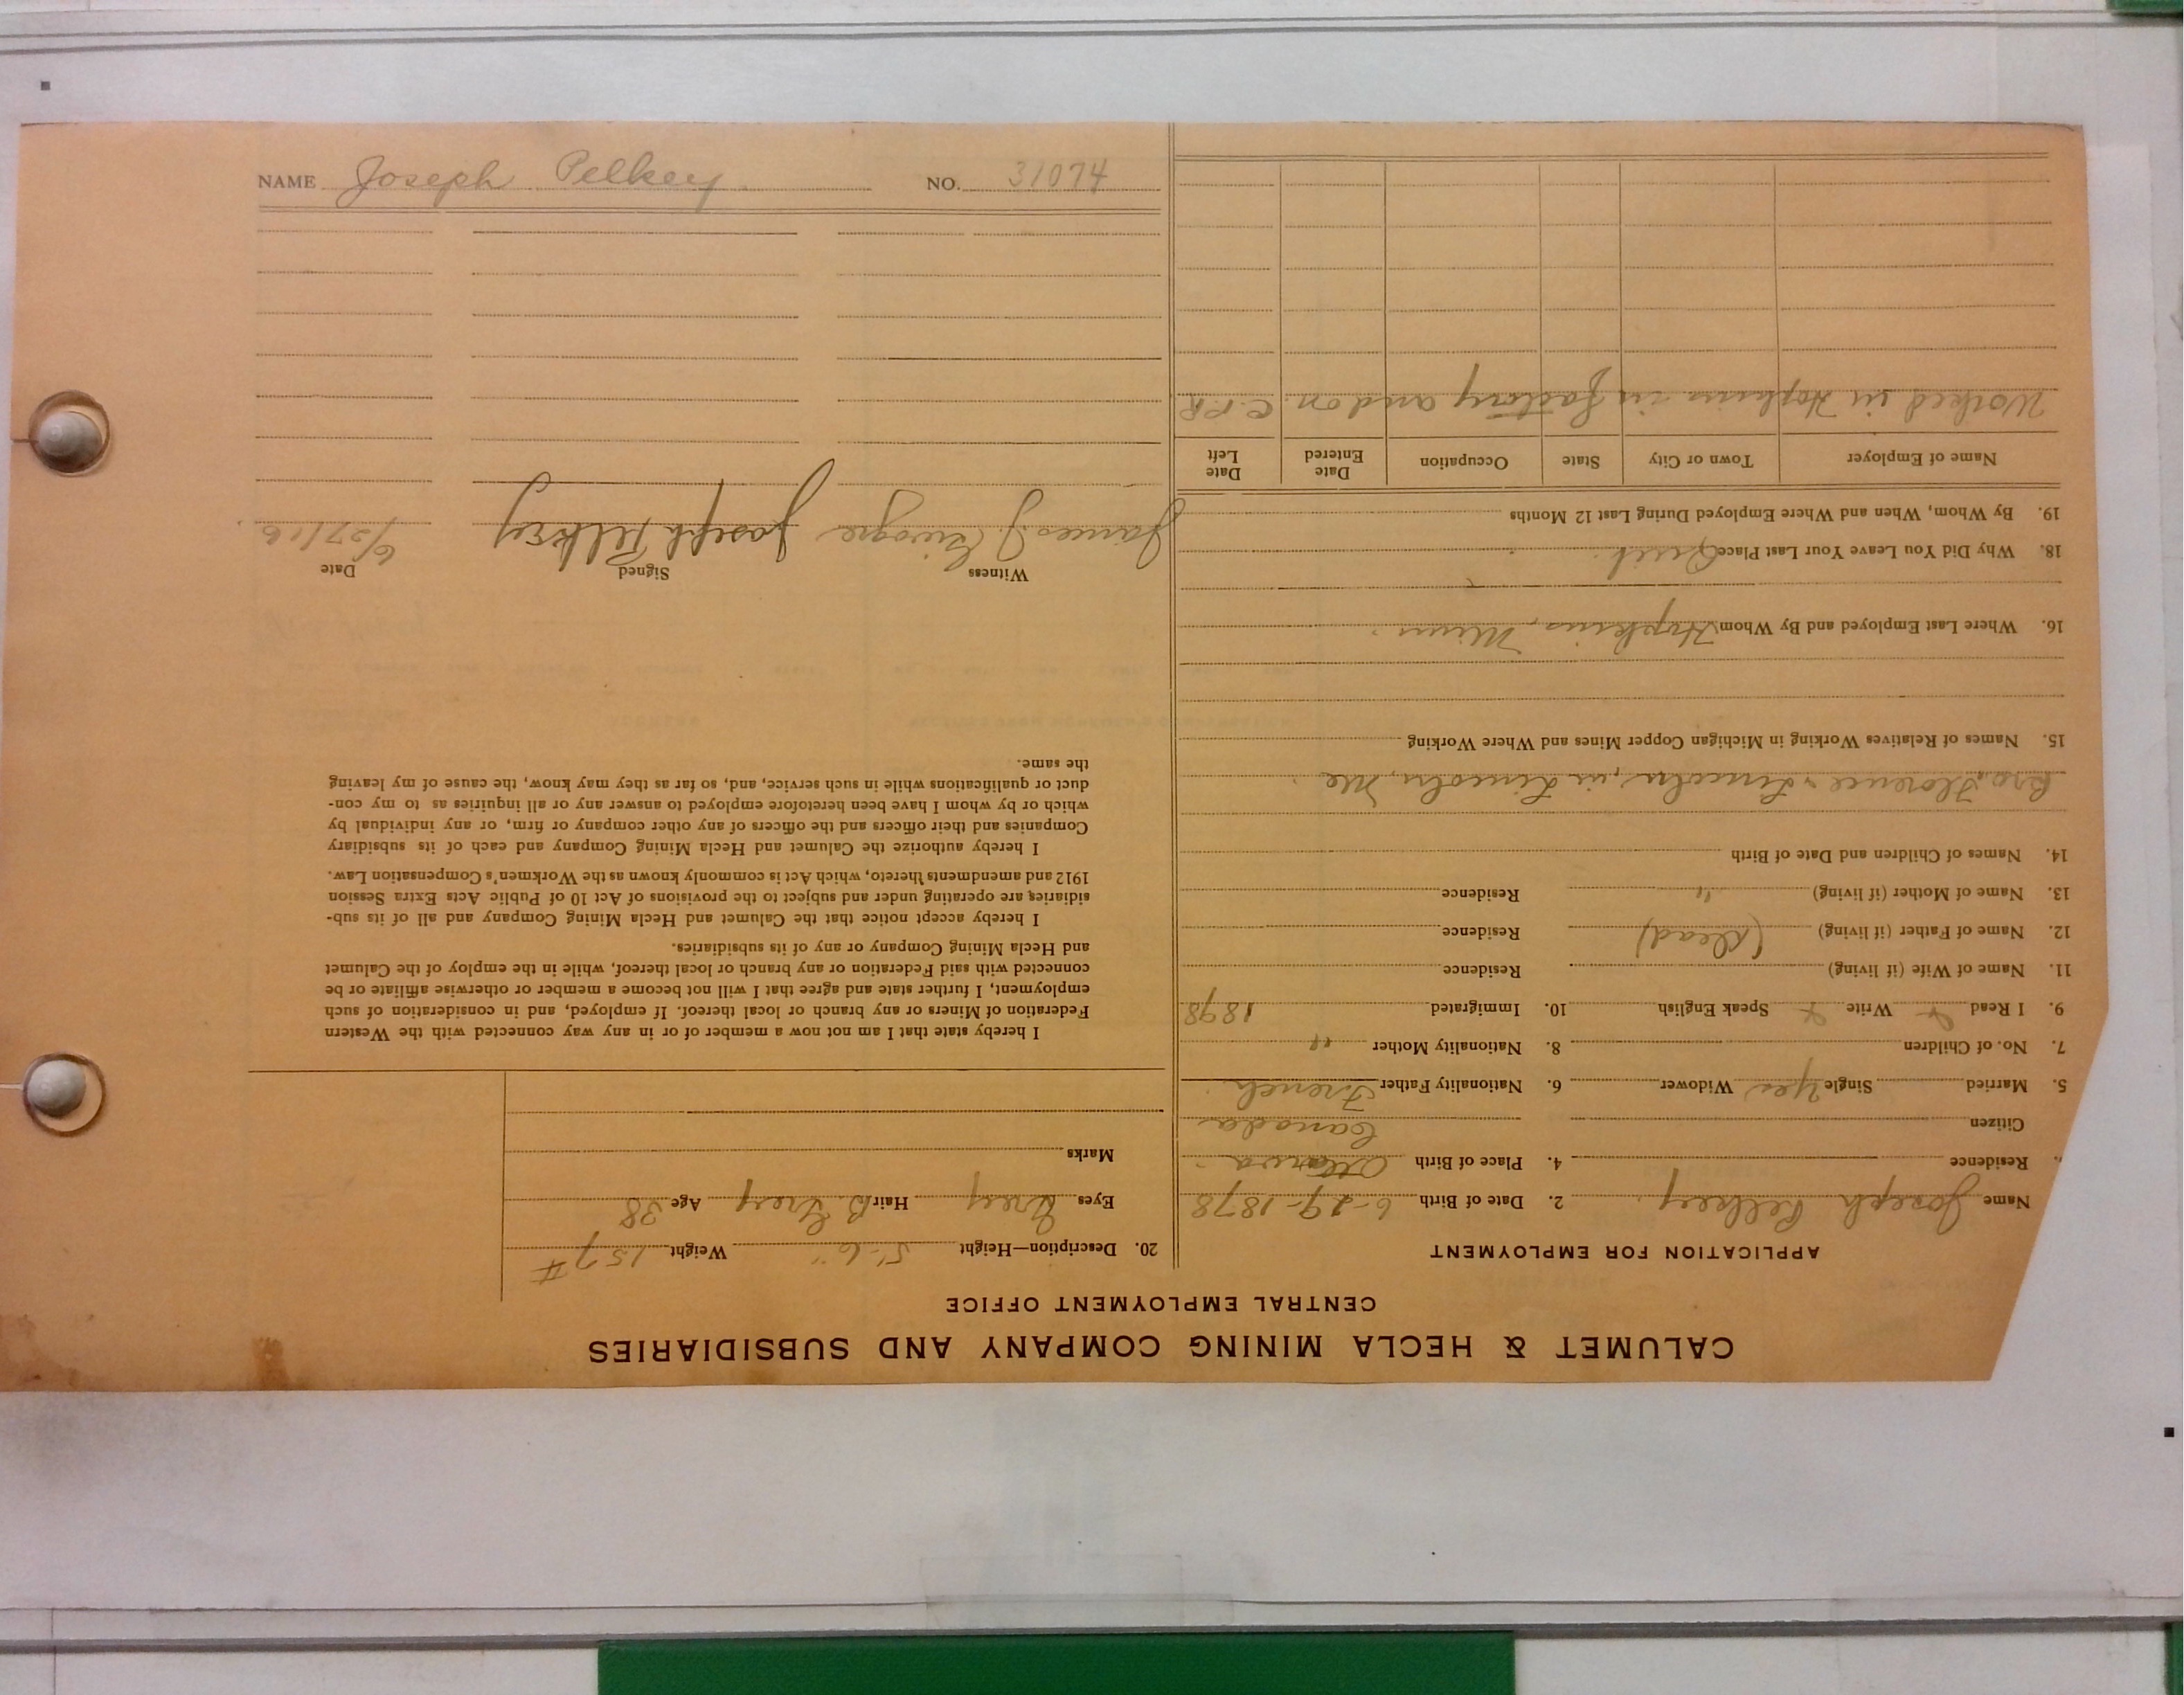 CALUMET & HECLA MINING COMPANY AND SUBSIDIARIES
CENTRAL EMPLOYMENT OFFICE
APPLICATION FOR EMPLOYMENT
Name Joseph Pelkey. 2. Date of Birth 6-29-1878
Residence 4. Place of Birth Ottawa
Citizen Canada
5. Married Single Yes Widower 6. Nationality Father French
7. No. of Children 8. Nationality Mother "
9. I Read Write Speak English 10. Immigrated 1898
11. Name of Wife (if living) Residence
12. Name of Father (if living) (Dead) Residence
13. Name of Mother (if living) " Residence
14. Names of Children and Date of Birth
Bro. Florence & Lincoln, in Lincoln, Me
15. Names of Relatives Working in Michigan Copper Mines and Where Working
16. Where Last Employed and By Whom Hopkins, Minn.
18. Why Did You Leave Your Last Place Quit.
19. By Whom, When and Where Employed During Last 12 Months
Name of Employer Town or City State Occupation Date Entered Date Left
Worked in Hopkins in factory and on C.P.R
20. Description—Height 5'-6" Weight 157 #
Eyes Grey Hair B. Grey Age 38
Marks
I hereby state that I am not now a member of or in any way connected with the Western
Federation of Miners or any branch or local thereof. If employed, and in consideration of such
employment, I further state and agree that I will not become a member or otherwise affiliate or be
connected with said Federation or any branch or local thereof, while in the employ of the Calumet
and Hecla Mining Company or any of its subsidiaries.
I hereby accept notice that the Calumet and Hecla Mining Company and all of its sub-
sidiaries are operating under and subject to the provisions of Act 10 of Public Acts Extra Session
1912 and amendments thereto, which Act is commonly known as the Workmen's Compensation Law.
I hereby authorize the Calumet and Hecla Mining Company and each of its subsidiary
Companies and their officers and the officers of any other company or firm, or any individual by
which or by whom I have been heretofore employed to answer any or all inquiries as to my con-
duct or qualifications while in such service, and, so far as they may know, the cause of my leaving
the same.
Witness Signed Date
James J. Joseph Pelkey 6/27/16
NAME Joseph Pelkey. NO. 31074